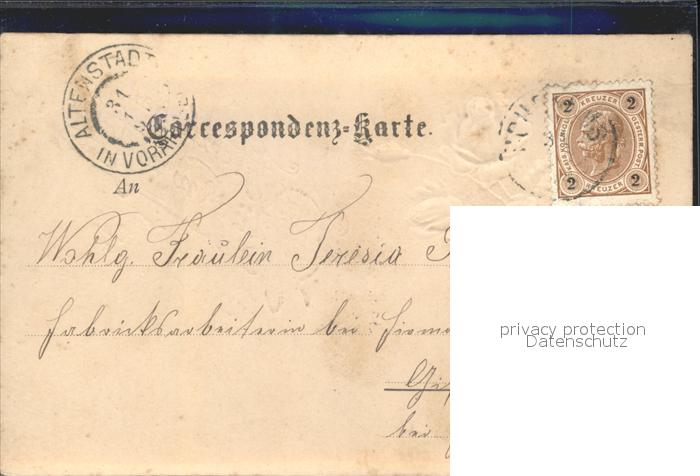 ALTENSTADT
31
IN VORARL
Correspondenz-Karte.
2 KREUZER 2
KAIS. KOENIGL. OESTERR. POST
2 KREUZER 2
An
Wohlg. Fräulein Teresia
Fabriksarbeiterin bei Firma
bei
privacy protection
Datenschutz